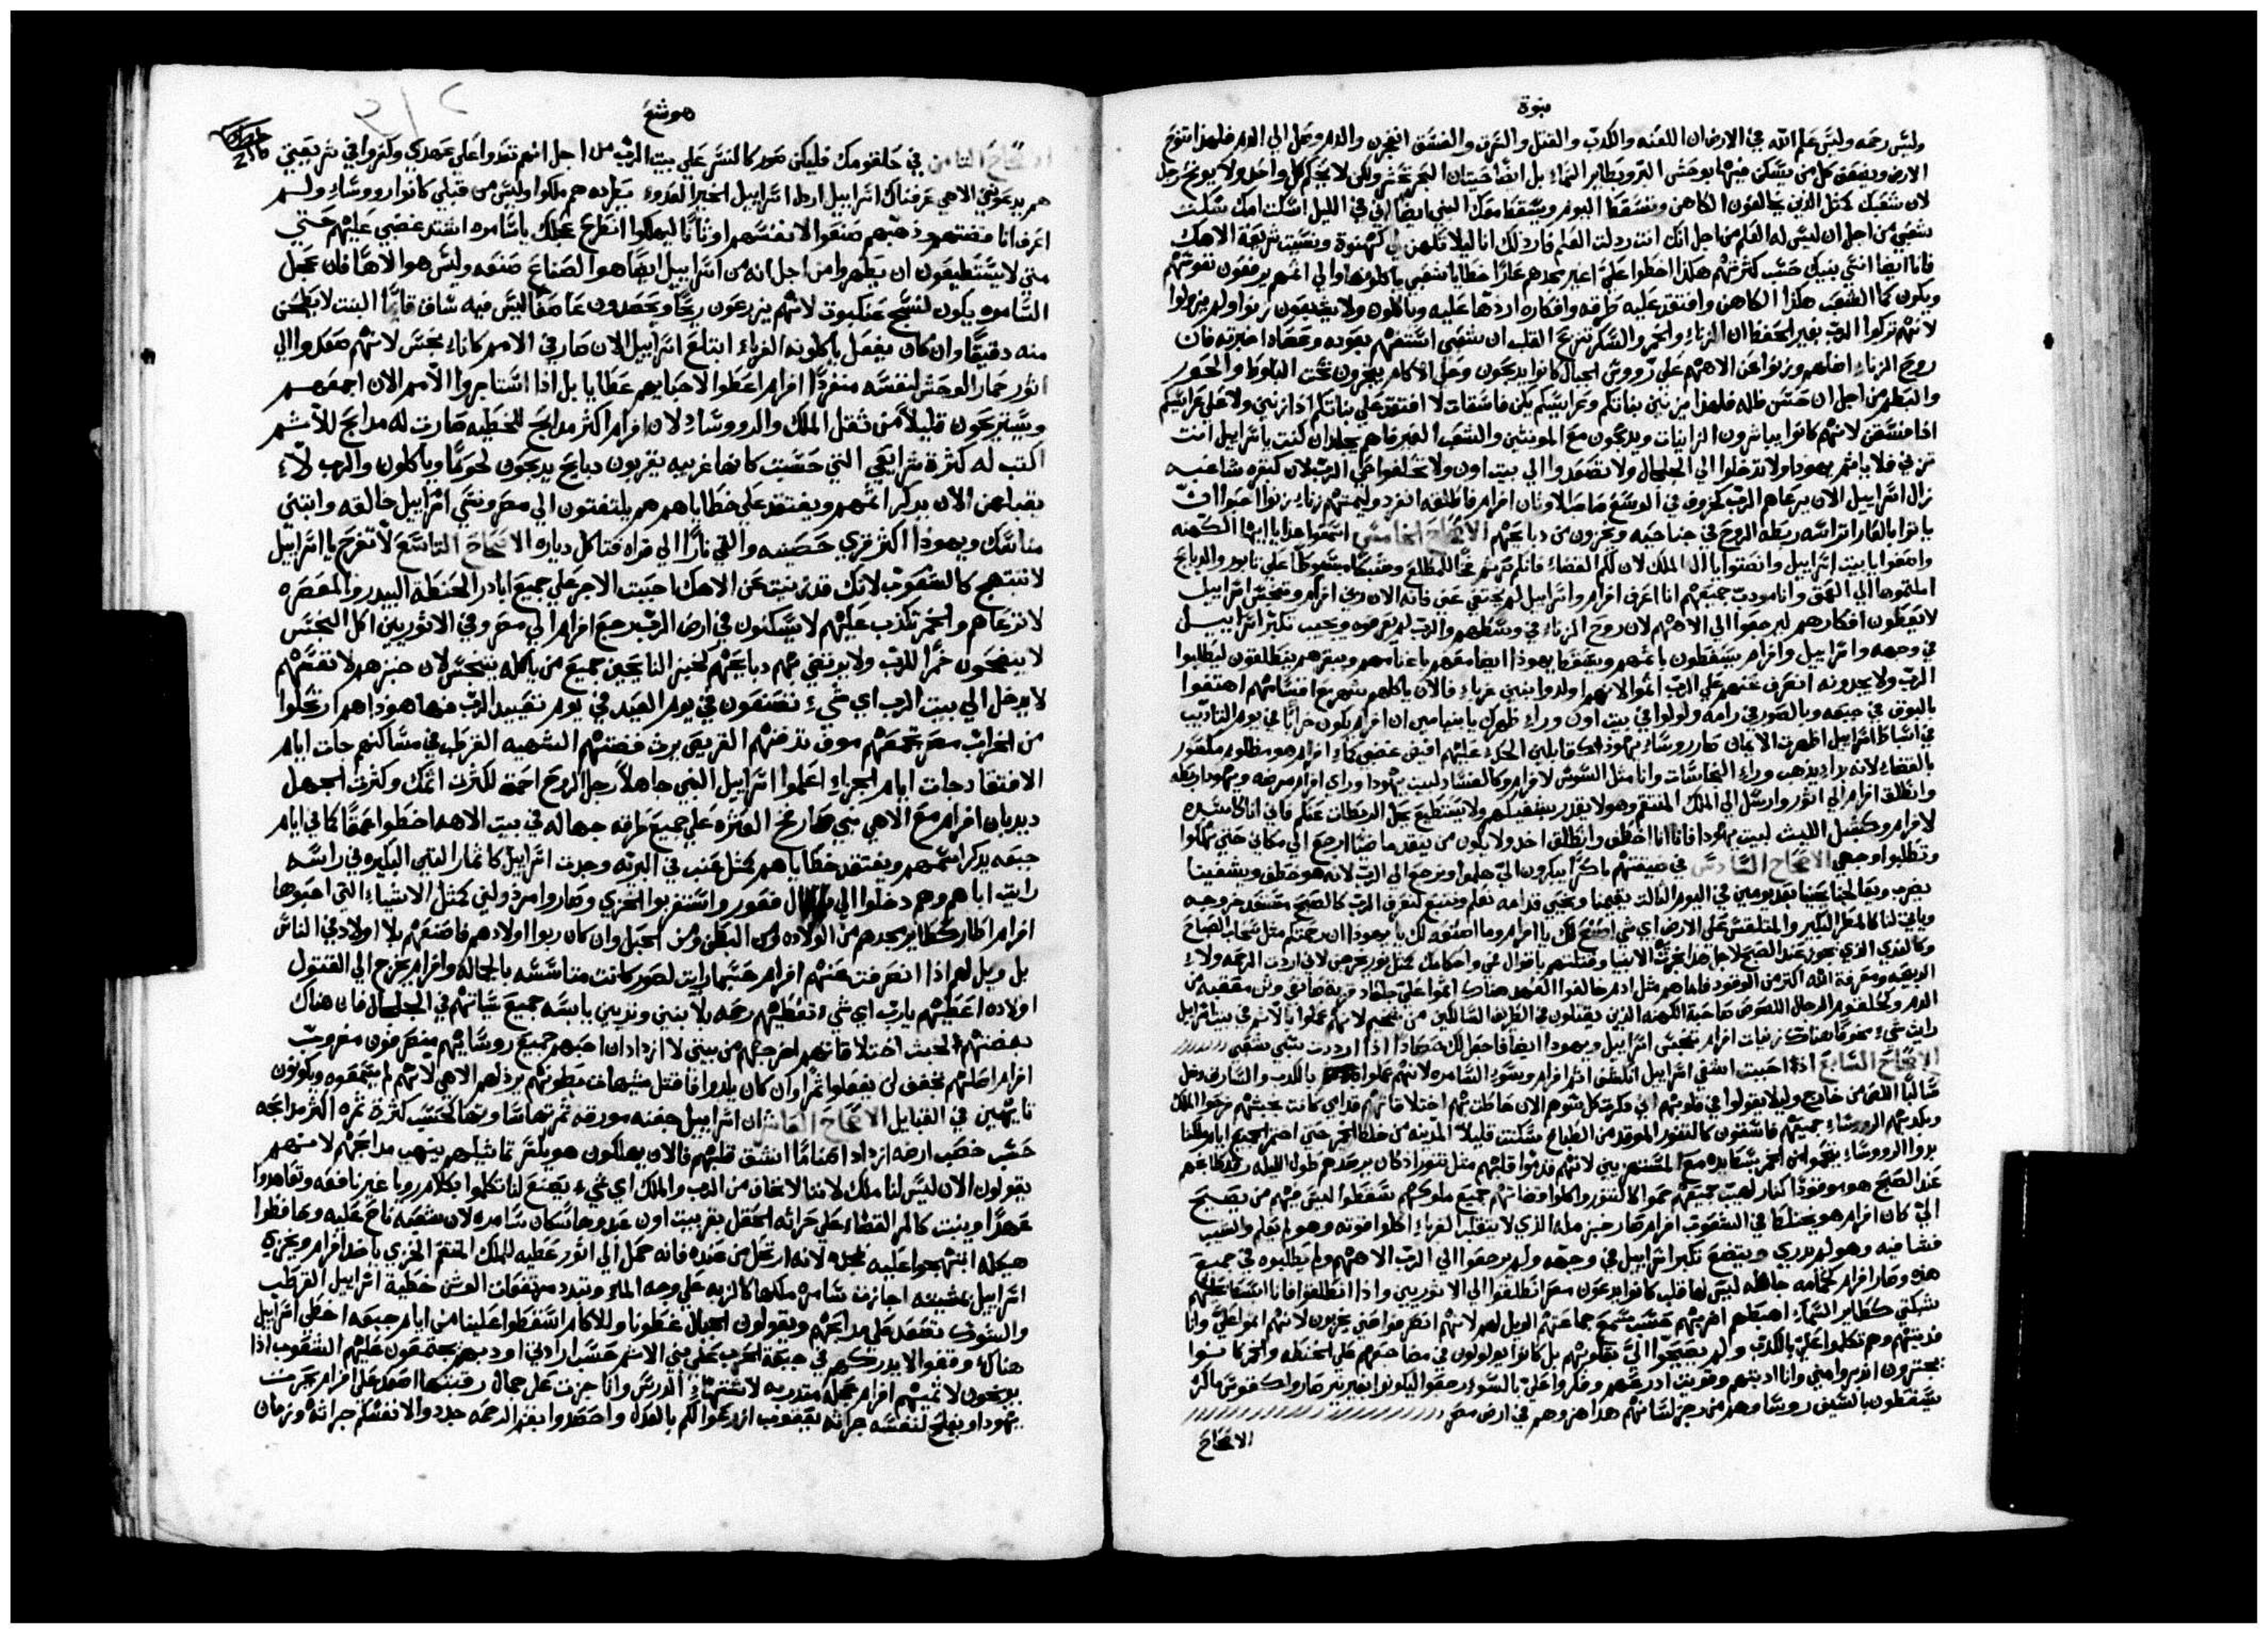 نبوة
وليس رحمه وليس علم الله في الارض ان اللعنه والكدب والقتل والسرق والفسق انفجرن والدم وصل الي الدم فلهذا تنوح
الارض ويضعف كل من يسكن فيها بوحش البر وبطاير السماء بل ايضا حيتان البحر تحشر ولكن لا يحكم كل واحد ولا يوبخ رجل
لان شعبك كمثل الذين يخالفون الكاهن وتسقط اليوم ويسقط معك النبي ايضا في الليل اسكت امك سكت
شعبي من اجل ان ليس له العلم من اجل انك انت ردلت العلم فاردلك انا ليلا تكهن لي كهنوة ونسيت شريعة الاهك
فانا ايضا انسي بنيك حسب كثرتهم هكذا اخطوا علي اغير مجدهم عارا خطايا شعبي ياكلونها والي اثمهم يرفعون نفوسهم
ويكون كما الشعب هكذا الكاهن وافتقد عليه طرقه وافكاره اردها عليه وياكلون ولا يشبعون زنوا ولم يزولوا
لانهم تركوا الرب بغير الحفظ ان الزناء والخمر والسكر تنزع القلب ان شعبي استفهم بعوده وعصاه اخبرته فان
روح الزناء اضلهم وزنوا عن الاههم علي رووس الجبال كانوا يدبحون وعلي الاكام يبخرون تحت البلوط والحور
والبطم من اجل ان حسن ظله فلهذا يزنين بناتكم وعرايسكم يكن فاسقات لا افتقد علي بناتكم اذا زنين ولا علي عرايسكم
اذا فسقن لانهم كانوا يباشرون الزانيات ويدبحون مع المونثين والشعب الغير فاهم يجلد ان كنت يا اسراييل انت
تزني فلا ياثم يهودا ولا تدخلوا الي الجلجال ولا تصعدوا الي بيت اون ولا تحلفوا حي الرب لان كبقره شاغبه
زال اسراييل الان يرعاهم الرب كخروف في الوسع
ربطه الروح في جناحيه ويخزون من دبايحهم الاصحاح الخامس اسمعوا هذا يا ايها الكهنه
واصغوا يا بيت اسراييل وانصتوا يا ال الملك لان لكم القضاء فانكم صرتم فخا للمطلع وشبكا مبسوطا علي تابور والدبايح
املتموها الي العمق وانا مودب جميعهم انا اعرف افرام واسراييل لم يختفي عني فانه الان زني افرام وتنجس اسراييل
لا يعطون افكارهم ليرجعوا الي الاههم لان روح الزناء في وسطهم والرب لم يعرفوه ويجيب تكبر اسراييل
في وجهه واسراييل وافرام يسقطون باثمهم ويسقط يهودا ايضا معهم باغنامهم وبقرهم ينطلقون ليطلبوا
الرب ولا يجدونه انصرف عنهم علي الرب اثموا لانهم اولدوا بنين غرباء فالان ياكلهم شهر مع اقسامهم اهتفوا
بالبوق في جبعه وبالصور في رامه ولولوا في بيت اون وراء ظهرك يا بنيامين ان افرام يكون خرابا في يوم التاديب
في اسباط اسراييل اظهرت الايمان صار روساء يهودا كقابلين الحد عليهم افيض غضبي كماء افرام هو مظلوم مكسور
بالقضاء لانه بدا يدهب وراء النجاسات وانا مثل السوس لافرام وكالفساد لبيت يهودا وراي افرام مرضه ويهودا ربطه
وانطلق افرام الي اتور وارسل الي الملك المنتقم وهو لا يقدر يشفيكم ولا يستطيع يحل الربطات عنكم فاني انا كاسد
لافرام وكشبل الليث لبيت يهودا فانا انا اخطف وانطلق اخد ولا يكون من ينقد ماضيا ارجع الي مكاني حتي تهلكوا
وتطلبوا وجهي الاصحاح السادس في ضيقتهم باكرا يبكرون الي هلموا ونرجع الي الرب لانه هو خطف ويشفينا
يضرب ويعالجنا يحيينا بعد يومين في اليوم التالت يقيمنا ونحيي قدامه نعلم ونتبع لنعرف الرب كالصبح مستعد خروجه
وياتي لنا كالمطر البكير والمتلقس علي الارض اي شي اصنع لك يا افرام وما اصنعه لك يا يهودا ان رحمتكم مثل سحاب الصباح
وكالندي الذي يجوز عند الصبح لاجل هذا نجرت الانبيا وقتلتهم باقوال فمي واحكامك كمثل نور تخرج لاني اردت الرحمه ولا
الدبيحه ومعرفة الله اكتر من الوقود فاما هم مثل ادم خالفوا العهد هناك اثموا علي جلعاد قرية صانعي وثن معقبه من
الدم وكحلقوم الرجال اللصوص صاحبة الكهنه الذين يقتلون في الطريق السالكين من شخيم لانهم عملوا بالاثم في بيت اسراييل
رايت شيء مخوفا هناك زنيات افرام تنجس اسراييل ويهودا ايضا فاجعل لك حصادا اذا اردت سبي شعبي
الاصحاح السابع اذا احببت اشفي اسراييل انكشف اثم افرام وسوء السامره لانهم عملوا بالكدب والسارق دخل
سالبا اللص من خارج وليلا يقولوا في قلوبهم اني دكرت كل شرهم الان احاطت بهم اختلاقاتهم قدامي كانت بخبثهم فرحوا الملك
وبكدبهم الروساء جميعهم فاسقون كالتنور الموقد من الطباخ سكنت قليلا المدينه من خلط الخمير حتي اختمر الجميع ايام ملكنا
بدوا الروساء يتحموا من الخمر بسط يده مع المستهزيين لانهم قدموا قلبهم مثل تنور اذ كان يرصدهم طول الليله رقد طابخهم
عند الصبح هو موقودا كنار لهيب جميعهم حموا كالتنور واكلوا قضاتهم جميع ملوكهم سقطوا ليس فيهم من يصيح
الي كان افرام هو يختلط في الشعوب افرام صار خبز مله الذي لا يتقلب الغرباء اكلوا قوته وهو لم يعلم والشيب
فشا فيه وهو لم يدري ويتضع تكبر اسراييل في وجهه ولم يرجعوا الي الرب الاههم ولم يطلبوه في جميع
هذه وصار افرام كحمامه جاهله ليس لها قلب كانوا يدعون مصر انطلقوا الي الاتوريين واذا انطلقوا فانا ابسط عليهم
شبكتي كطاير السماء اهبطهم اضربهم حسب سمع جماعتهم الويل لهم لانهم انصرفوا عني يخربون لانهم اثموا علي وانا
فديتهم وهم تكلموا علي بالكدب ولم يصيحوا الي بقلوبهم بل كانوا يولولون في مضاجعهم علي الحنطه والخمر كانوا
يجترون انصرفوا مني وانا ادبتهم وقويت ادرعهم وفكروا علي بالسوء رجعوا ليكونوا بغير نير صاروا كقوس ماكر
يسقطون بالسيف روساوهم من رجز لسانهم هذا هزوهم في ارض مصر
الاصحاح
هوشع
الاصحاح الثامن في حلقومك فليكن صور كالنسر علي بيت الرب من اجل انهم تعدوا علي عهدي وكفروا في شريعتي
هم يدعونني الاهي عرفناك اسراييل اردل اسراييل الخير العدو يطرده هم ملكوا وليس من قبلي كانوا رووساء ولم
اعرف انا فضتهم ودهبهم صنعوا لانفسهم اوثانا ليهلكوا انطرح عجلك يا سامره اشتد غضبي عليهم حتي
متي لا يستطيعون ان يطهروا من اجل انه من اسراييل ايضا هو الصناع صنعه وليس هو الاها فان عجل
السامره يكون لنسج عنكبوت لانهم يزرعون ريحا ويحصدون عاصفا ليس فيه ساق قايما النبت لا يطحن
منه دقيقا وان كان يفعل ياكلونه الغرباء ابتلع اسراييل الان صار في الامم كاناء نجس لانهم صعدوا الي
اتور حمار الوحش لنفسه منفردا افرام اعطوا لاحبايهم عطايا بل اذا استاجروا الامم الان اجمعهم
ويستريحون قليلا من ثقل الملك والروساء لان افرام اكثر مدابح للخطيه صارت له مدابح للاثم
اكتب له كثرة شرايعي التي حسبت كانها غريبه يقربون دبايح يدبحون لحوما وياكلون والرب لا
يقبلهن الان يدكر اثمهم ويفتقد علي خطاياهم هم يلتفتون الي مصر ونسي اسراييل خالقه وابتني
مناسك ويهودا اكثر قري حصينه والقي نارا الي قراه فتاكل دياره الاصحاح التاسع لا تفرح يا اسراييل
لا تبتهج كالشعوب لانك قد زنيت عن الاهك احببت الاجر علي جميع ايادر الحنطه البيدر والمعصره
لا ترعاهم والخمر تكدب عليهم لا يسكنون في ارض الرب رجع افرام الي مصر وفي الاثوريين اكل النجس
لا ينضحون خمرا للرب ولا يرتضي بهم دبايحهم كخبز النايحين جميع من ياكله يتنجس لان خبزهم لانفسهم
لا يدخل الي بيت الرب اي شيء تصنعون في يوم العيد في يوم تعييد الرب فها هوذا هم ارتحلوا
من الخراب مصر تجمعهم موف تدفنهم القريص يرث فضتهم الشهيه القرطب في مساكنهم جات ايام
الافتقاد جات ايام الجزاء اعلموا اسراييل النبي جاهلا رجل الروح احمق لكثرت اثمك وكثرت الجهل
ديدبان افرام مع الاهي نبي صار فخ العثره علي جميع طرقه جهاله في بيت الاهه اخطوا عمقا كما في ايام
جبعه يدكر اثمهم ويفتقد خطاياهم كمثل عنب في البريه وجدت اسراييل كاثمار التين البكيره في راسه
رايت اباهم وهم دخلوا الي فغور واستغربوا للخزي وصاروا مردولين كمثل الاشياء التي احبوها
افرام اطار كطاير مجدهم من الولاده ومن البطن ومن الحبل وان كان ربوا اولادهم فاصنعهم بلا اولاد في الناس
بل ويل لهم اذا انصرفت عنهم افرام حسبما رايت لصور كانت متاسسه بالجماله وافرام يخرج الي القتول
اولاده اعطيهم يارب اي شيء تعطيهم رحم بلا بنين وثديين يابسه جميع سياتهم في الجلجال فان هناك
بغضتهم لخبث اختلاقاتهم اخرجهم من بيتي لا ازداد ان احبهم جميع روسايهم منصرفون مضروب
افرام اصلهم تجفف لن يفعلوا ثمرا وان كان يلدوا فاقتل مشتهيات بطونهم يردلهم الاهي لانهم لم يسمعوه ويكونون
تايهين في القبايل الاصحاح العاشر ان اسراييل جفنه مورقه ثمرتها ساويتها لحسب كثرة ثمره اكثر مدابحه
حسب خصب ارضه ازداد اصناما انشق قلبهم فالان يهلكون هو يكسر تماثيلهم ينهب مدابحهم لانهم
يقولون الان ليس لنا ملك لاننا لا نخاف من الرب والملك اي شيء يصنع لنا تكلموا بكلام رويا غير نافعه وتعاهدوا
عهدا وينبت كالمر القضاء علي حراثه الحقل بقر بيت اون عبدوها سكان سامره لان شعبه ناح عليه وحافظوا
هيكله ابتهجوا عليه بمجده لانه ارتحل من عنده فانه حمل الي اتور عطيه للملك المنتقم الخزي ياخد افرام ويخزي
اسراييل بمشيته اجازت سامره ملكها كالزبه علي وجه الماء وتبدد مرتفعات الوثن خطية اسراييل القرطب
والشوك تصعد علي مدابحهم ويقولون للجبال غطونا وللاكام اسقطوا علينا من ايام جبعه اخطي اسراييل
هناك وقفوا لا يدركهم في جبعة الحرب علي بني الاثم حسب ارادتي اودبهم يجتمعون عليهم الشعوب اذا
يودبون لاثميهم افرام عجله متدربه لاشتهاء الدرس وانا جزت علي جمال رقبتها اصعد علي افرام يحرث
يهودا ويفلح لنفسه جراثه يعقوب ازرعوا لكم بالعدل واحصدوا بفم الرحمه جددوا لانفسكم جراثة وزمان